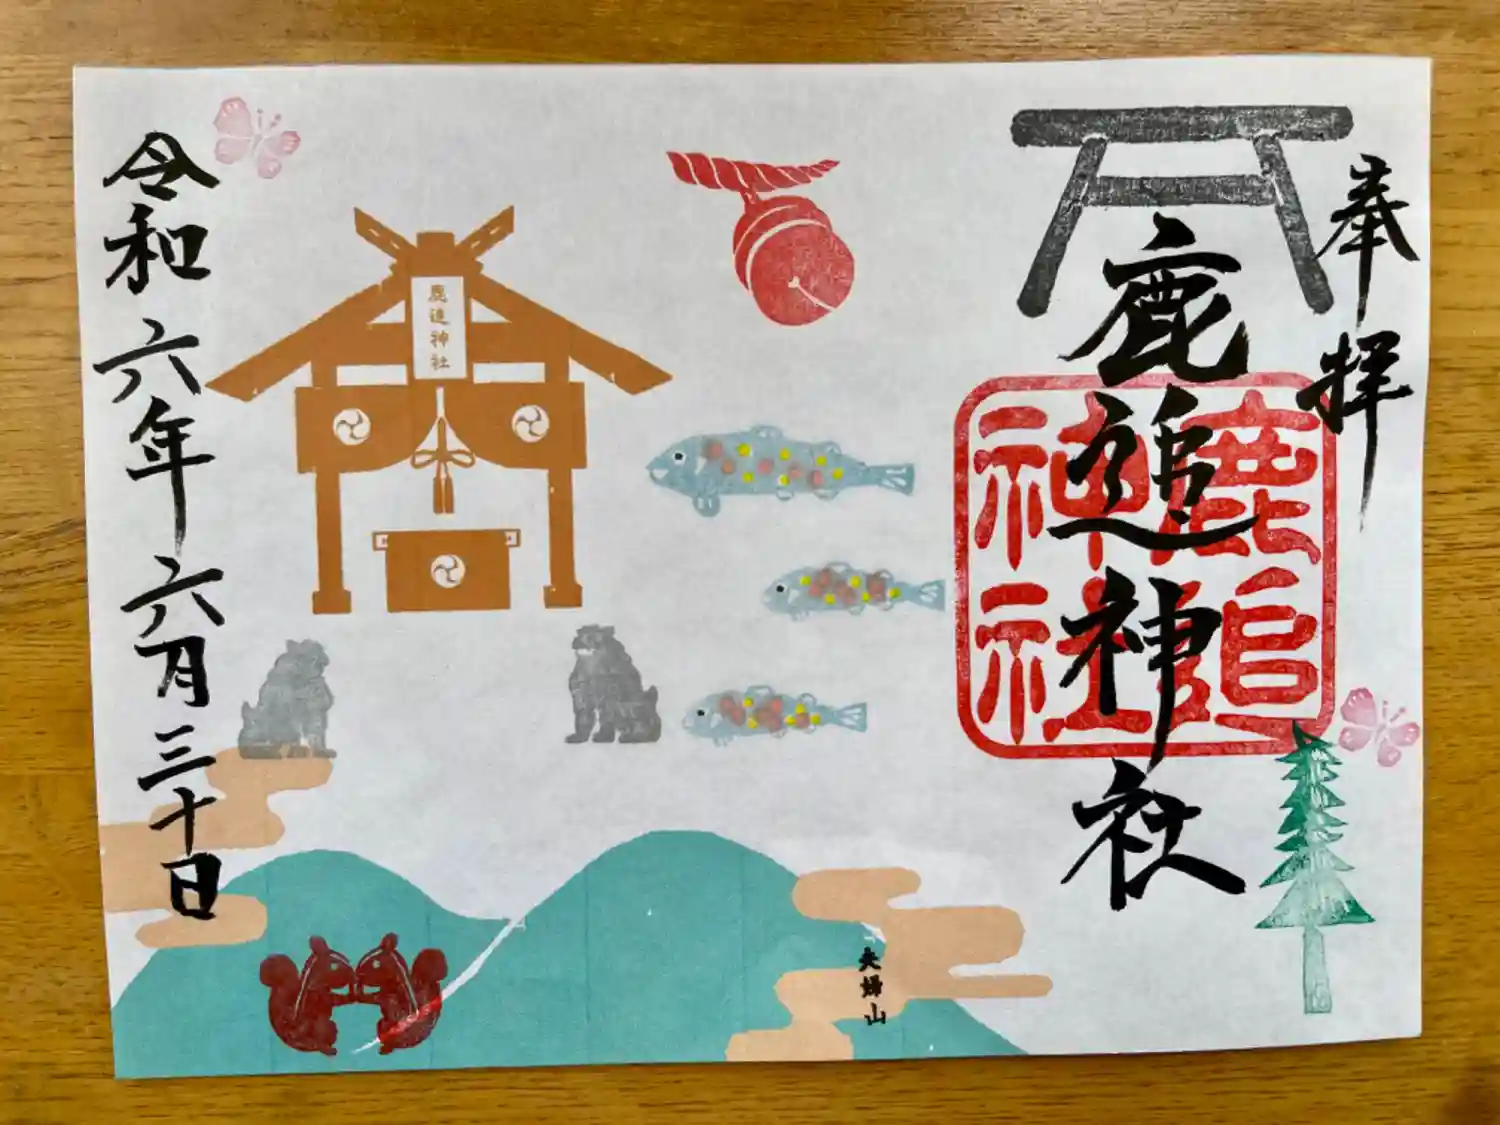 奉拝
鹿追神社
鹿追神社
鹿追神社
夫婦山
令和六年六月三十日